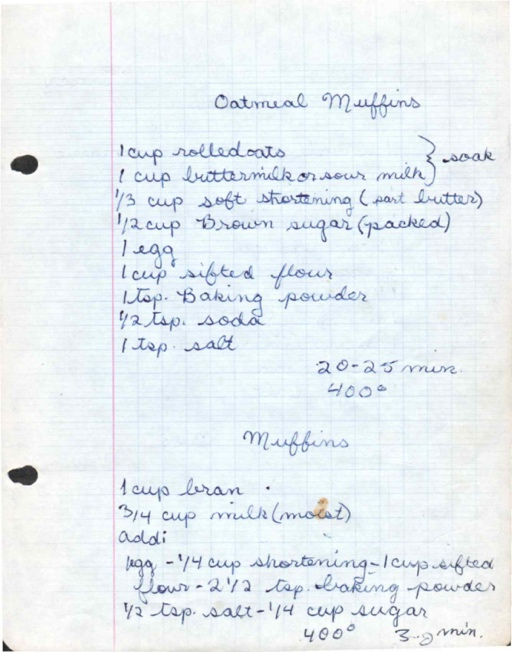 Oatmeal Muffins
1 cup rolled oats
1 cup buttermilk or sour milk } soak
1/3 cup soft shortening (part butter)
1/2 cup Brown sugar (packed)
1 egg
1 cup sifted flour
1 tsp. Baking powder
1/2 tsp. soda
1 tsp. salt
20-25 min.
400°
Muffins
1 cup bran
3/4 cup milk (moist)
add:
1 egg - 1/4 cup shortening - 1 cup sifted
flour - 2 1/2 tsp. baking powder
1/2 tsp. salt - 1/4 cup sugar
400° min.